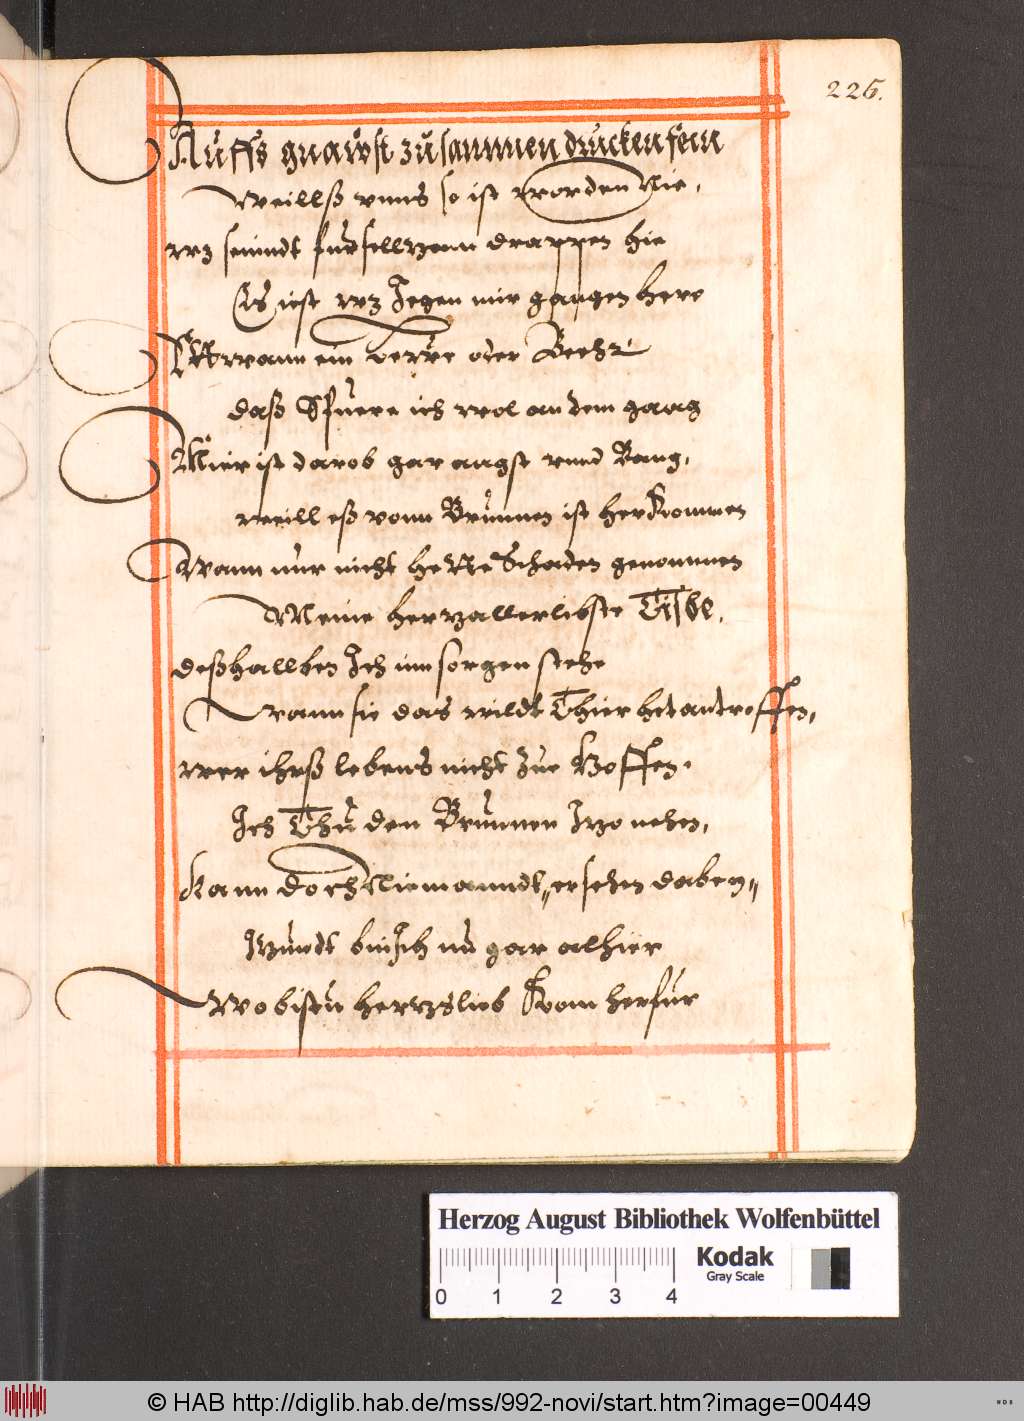 226.
Auffs gnawst zusammen drucken fein
Weillß vnns so ist worden Nie,
wz seindt fur fellzenn drappen hie
Es ist wz Jegen mir gangen here
Etwann ein Lewe oder Beehr
daß Spuere ich wol an dem gang
Mier ist darob gar angst vnnd Bang,
weill eß vonn Brunnen ist her Kommen
Wann nur nicht hette Schaden genommen
Meine hertzallerlibste Tisbe,
deßhallben Ich inn sorgen stehe
wann sie das wildt Thier het antroffen,
wer ihrß lebens nicht zue hoffen.
Ich Thu den Brunnen Itzo nehen,
Kann doch Niemanndt ersehen daben
Itzundt bin Ich nu gar alhier
Wo bistu hertzslieb Kom herfur
Herzog August Bibliothek Wolfenbüttel
Kodak
Gray Scale
0 1 2 3 4
© HAB http://diglib.hab.de/mss/992-novi/start.htm?image=00449